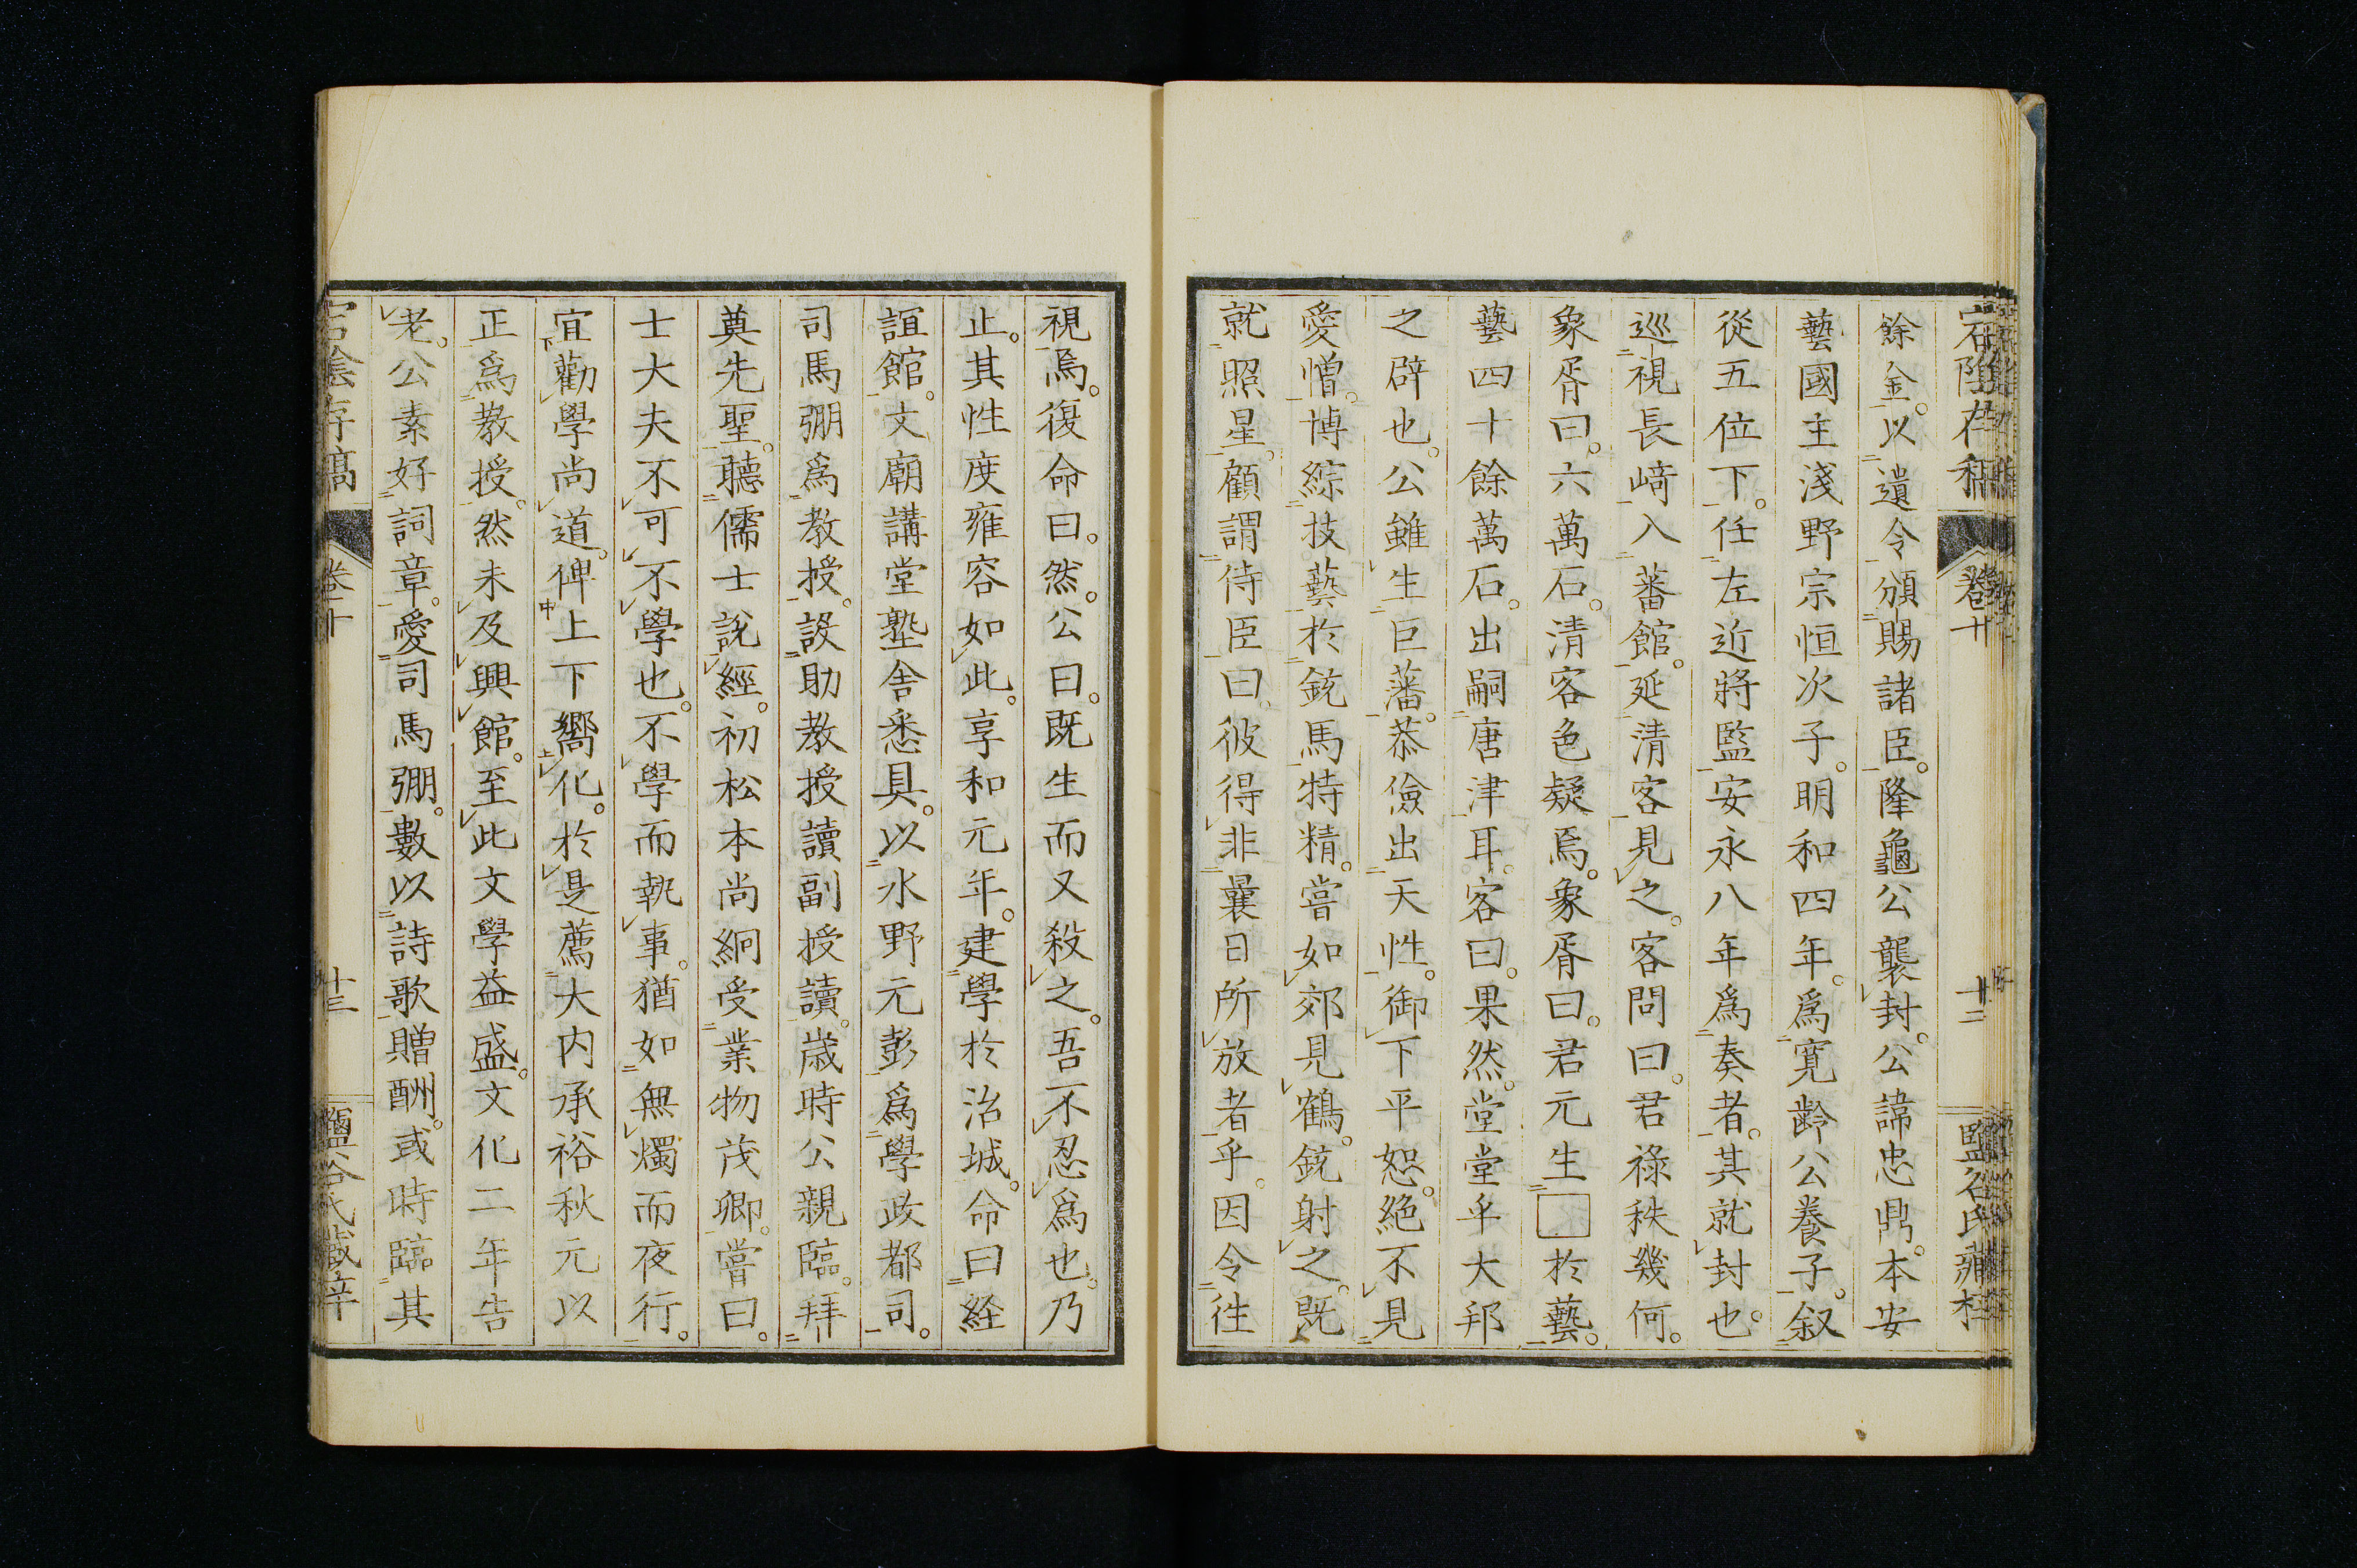 宕陰存稿 卷十 十二 鹽谷氏藏梓
餘金。以遺令頒賜諸臣。隆龜公襲封。公諱忠鼎。本安
藝國主淺野宗恒次子。明和四年。爲寛齡公養子。叙
從五位下。任左近將監。安永八年爲奏者。其就封也。
巡視長﨑。入蕃館。延清客見之。客問曰。君祿秩幾何。
象胥曰。六萬石。清客色疑焉。象胥曰。君元生□於藝。
藝四十餘萬石。出嗣唐津耳。客曰。果然。堂堂乎大邦
之辟也。公雖生巨藩。恭儉出天性。御下平恕。絶不見
愛憎。博綜技藝。於銃馬特精。嘗如郊見鶴。銃射之。既
就照星。顧謂侍臣曰。彼得非曩日所放者乎。因令往
視焉。復命曰。然。公曰。既生而又殺之。吾不忍爲也。乃
止。其性度雍容如此。享和元年。建學於治城。命曰経
誼館。文廟講堂塾舎悉具。以水野元彭爲學政都司。
司馬弸爲教授。設助教授讀副授讀。歳時公親臨。拜
奠先聖。聽儒士說經。初松本尚絅受業物茂卿。嘗曰。
士大夫不可不學也。不學而執事。猶如無燭而夜行。
宜勸學尚道。俾上下嚮化。於是薦大内承裕秋元以
正爲教授。然未及興館。至此文學益盛。文化二年告
老。公素好詞章。愛司馬弸。數以詩歌贈酬。或時臨其
宕陰存稿 卷十 十三 鹽谷氏藏梓